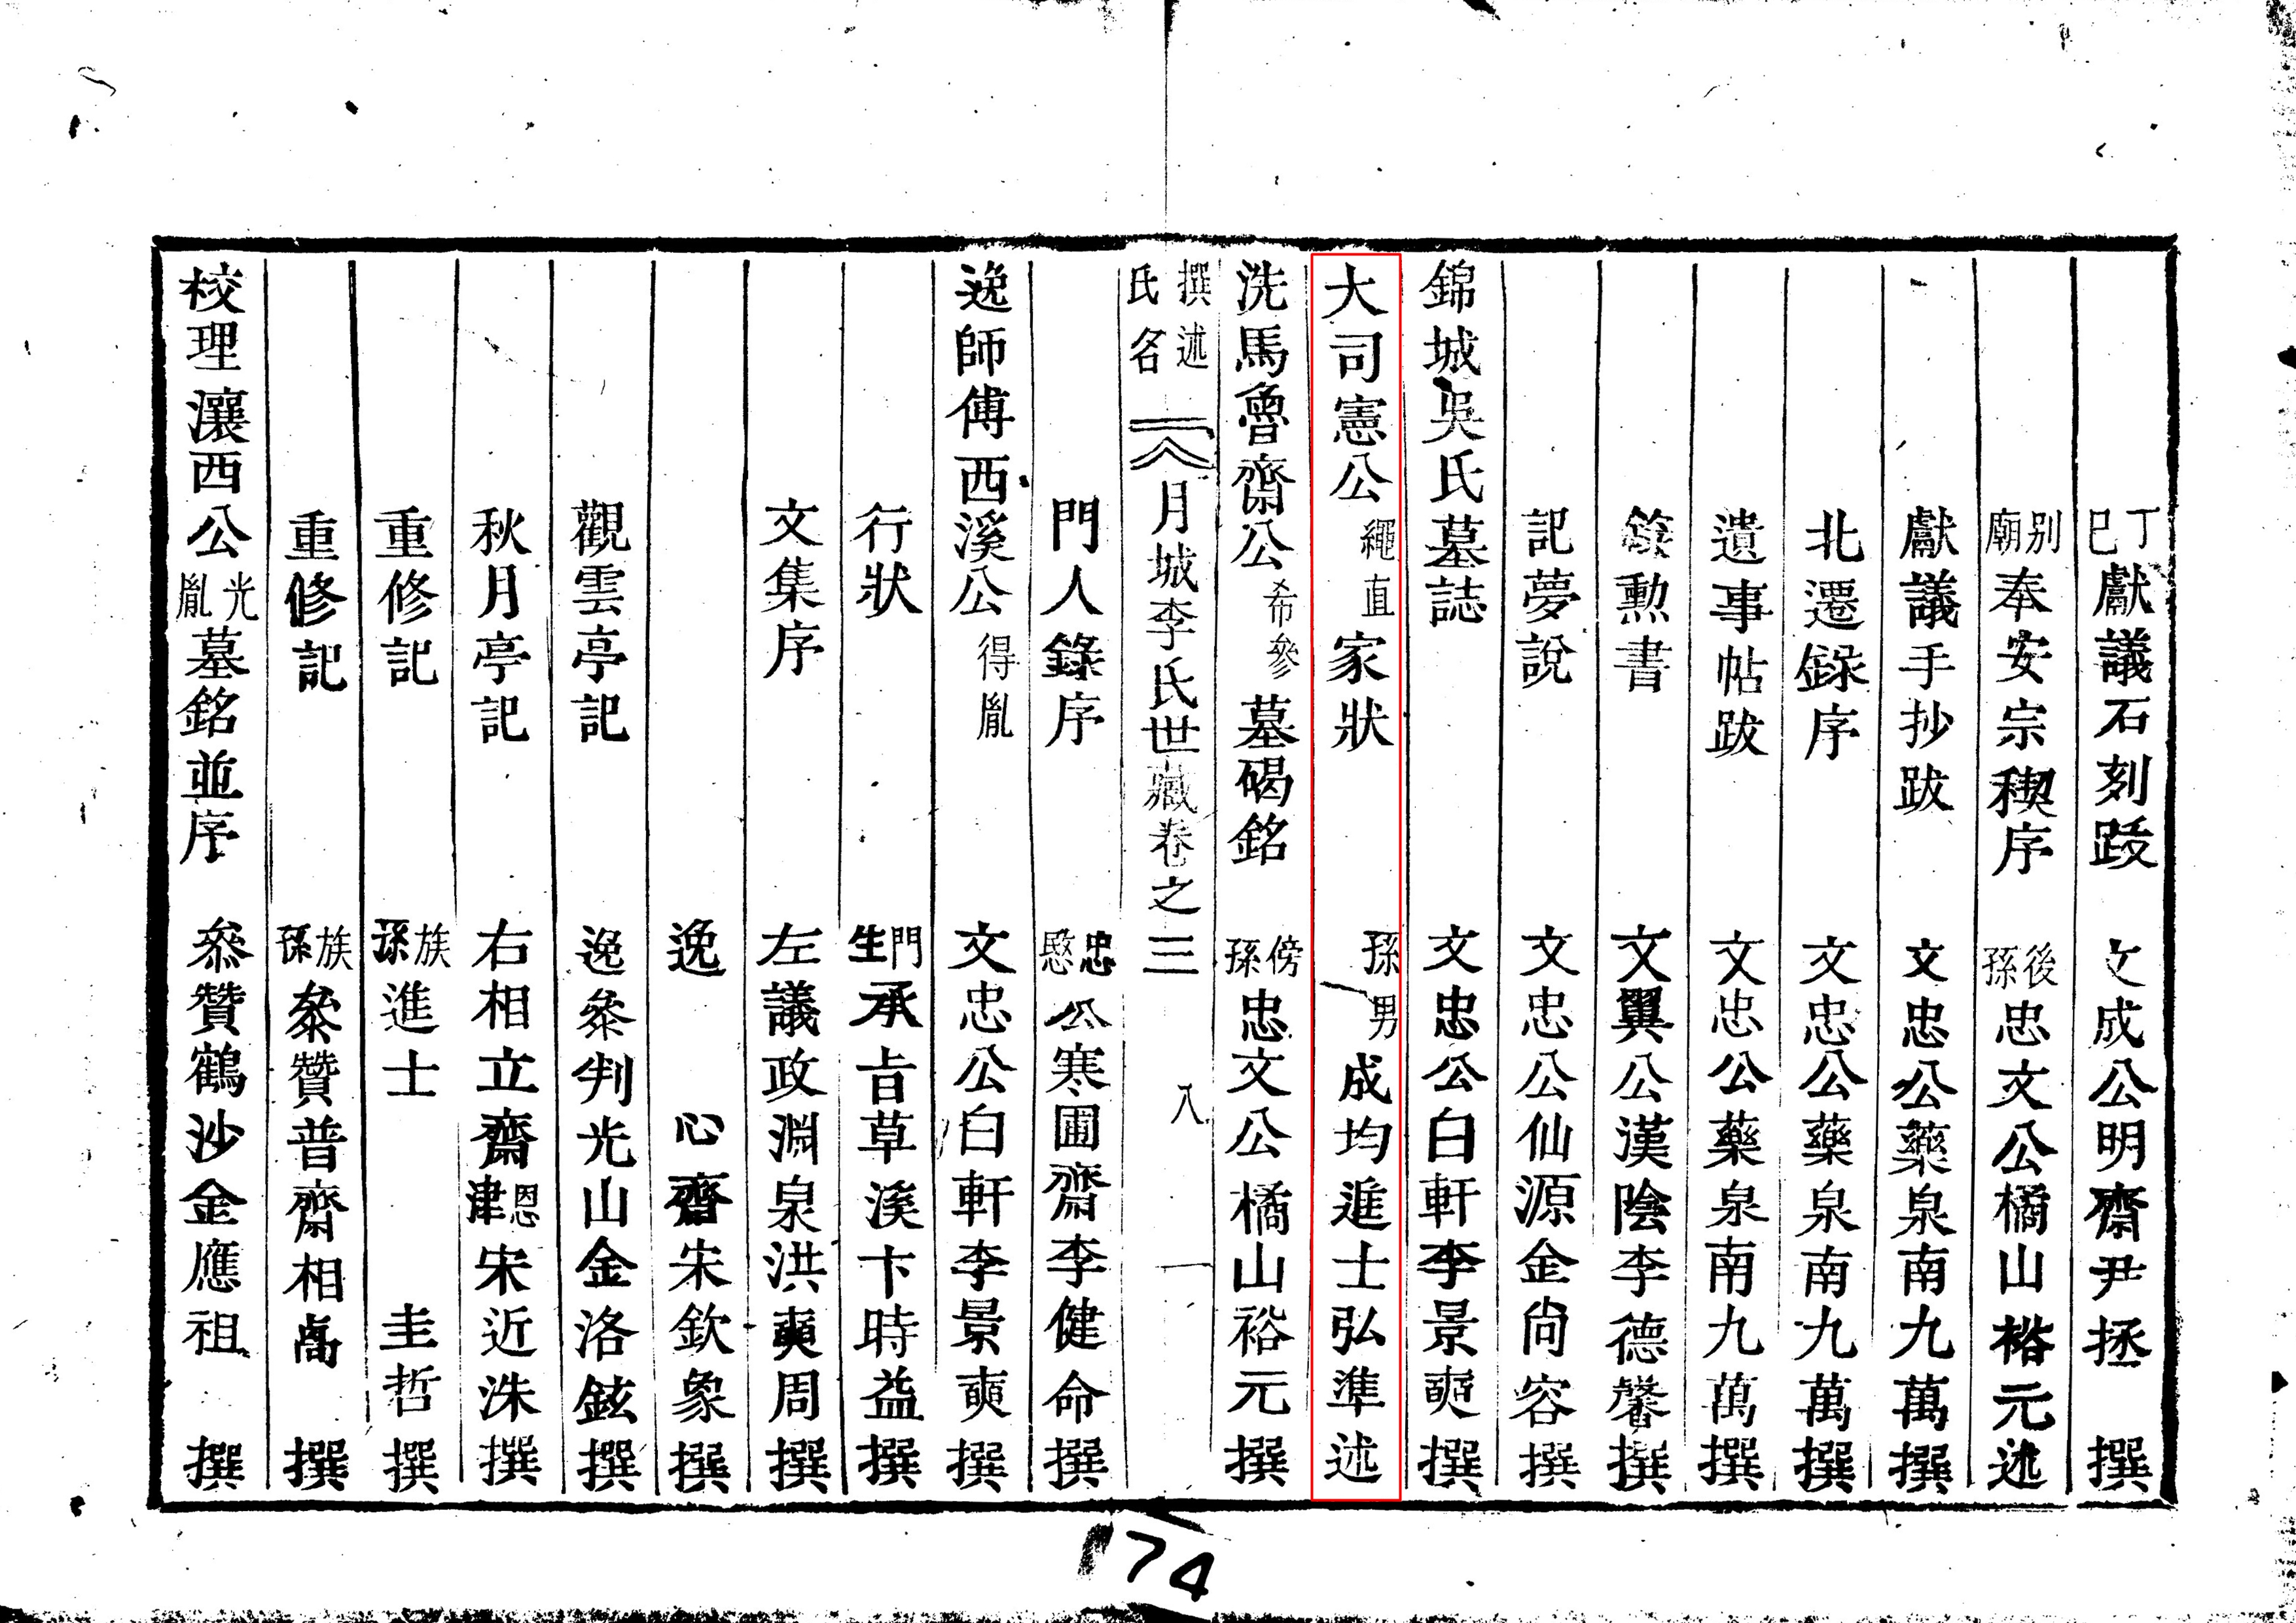 丁巳獻議石刻跋 文成公明齋尹拯 撰
别廟奉安宗稧序 後孫忠文公橘山裕元述
獻議手抄跋 文忠公藥泉南九萬撰
北遷録序 文忠公藥泉南九萬撰
遺事帖跋 文忠公藥泉南九萬撰
策勲書 文翼公漢陰李德馨撰
記夢說 文忠公仙源金尙容撰
錦城吳氏墓誌 文忠公白軒李景奭撰
大司憲公繩直家狀 孫男成均進士弘準述
洗馬魯齋公希參墓碣銘 傍孫忠文公橘山裕元撰
撰述氏名 月城李氏世藏卷之三 八
門人錄序 忠愍公寒圃齋李健命撰
逸師傅西溪公得胤 文忠公白軒李景奭撰
行狀 門生承旨草溪卞時益撰
文集序 左議政淵泉洪奭周撰
逸 心齋宋欽象撰
觀雲亭記 逸叅判光山金洛鉉撰
秋月亭記 右相立齋恩津宋近洙撰
重修記 族孫進士 圭哲撰
重修記 族孫叅贊普齋相卨 撰
校理瀼西公光胤墓銘並序 叅贊鶴沙金應祖 撰
174